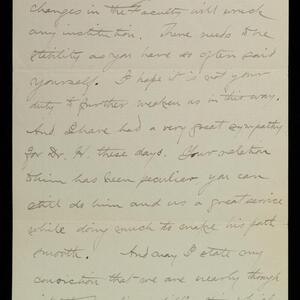 changes in the Faculty will wreck
any institution. There needs to be
stability as you have so often said
yourself. I hope it is not your
duty to further weaken us in this way.
And I have had a very great sympathy
for Dr. H. these days. Your relation
to him has been peculiar you can
still do him and us a great service
while doing much to make his path
smooth. And may I state my
conviction that we are nearly through